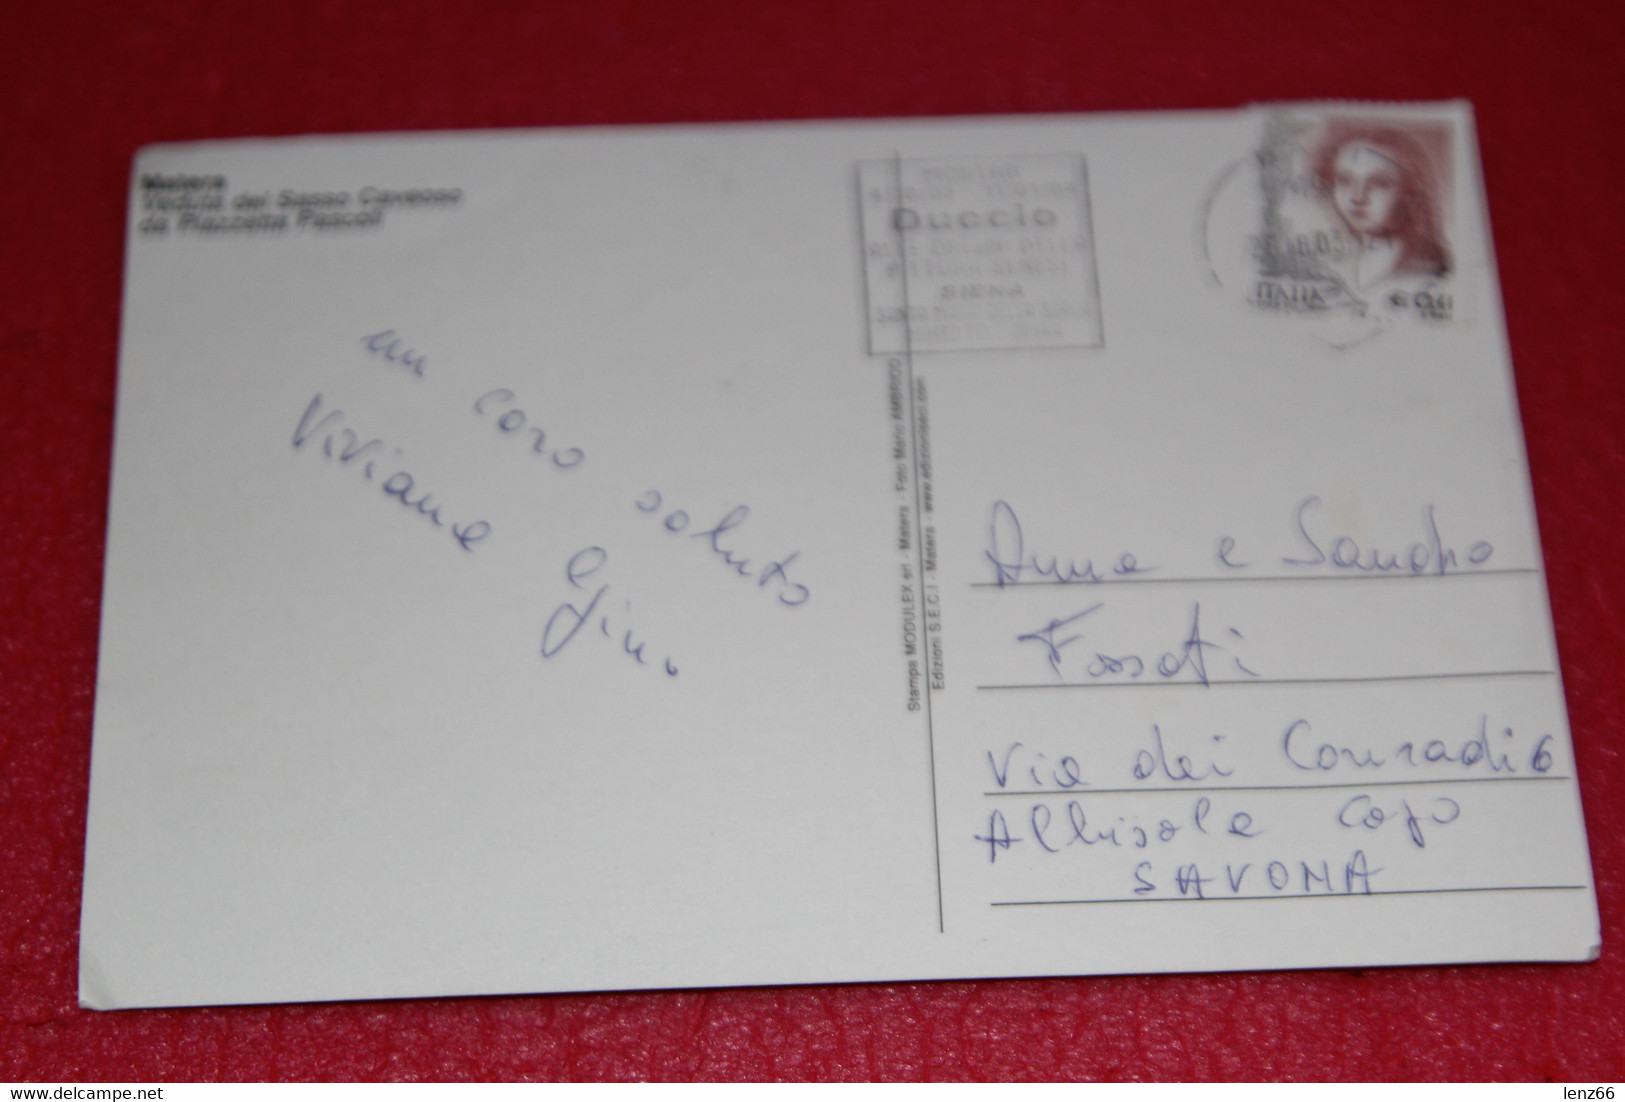 Matera
Veduta del Sasso Caveoso
da Piazzetta Pascoli
MOSTRE
Duccio
SIENA
ITALIA
€ 0,41
un caro saluto
Viviana Gino
Stampa MODULEX srl - Matera - Foto Mario AMBRICO
Edizioni S.E.C.I - Matera - www.edizioniseci.com
Anna e Sandro
Fossati
Via dei Conradi 6
Albisola Capo
SAVONA
lenz66